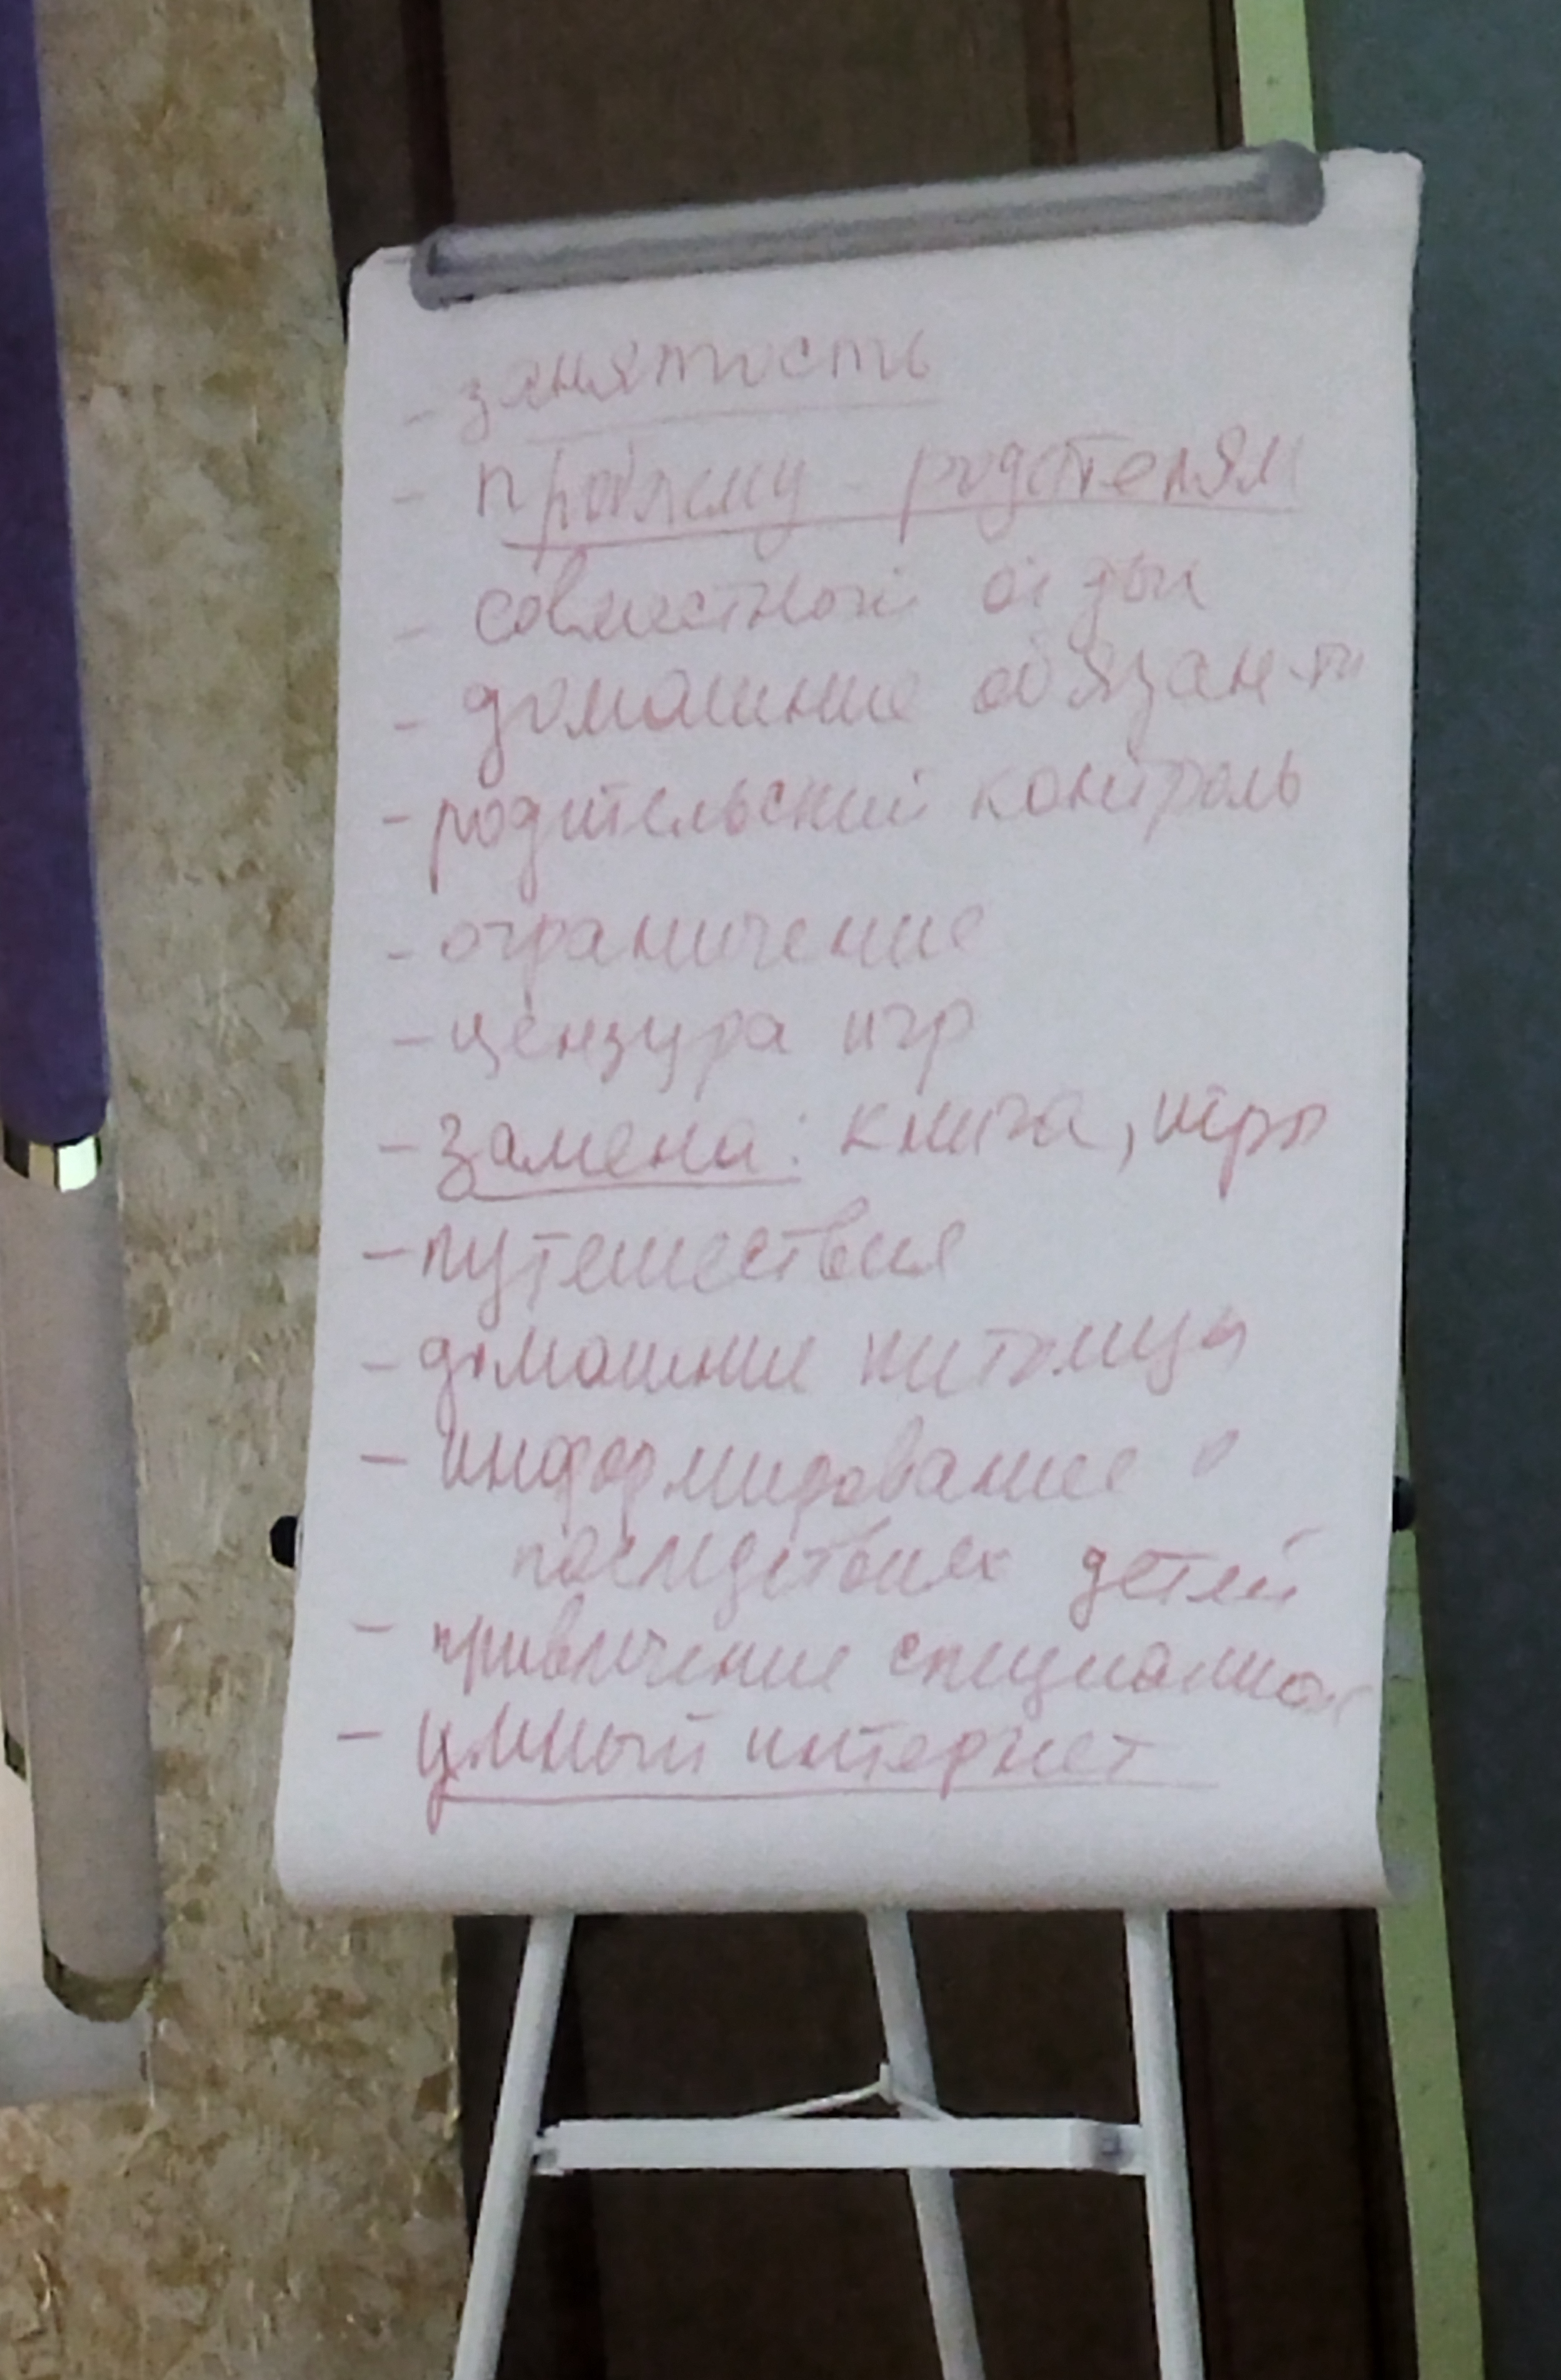 - занятость
- проблему - родителям
- совместный отдых
- домашние обязан-ти
- родительский контроль
- ограничение
- цензура игр
- замена: книга, игры
- путешествия
- домашние питомцы
- информирование о
последствиях детей
- привлечение
- умный интернет